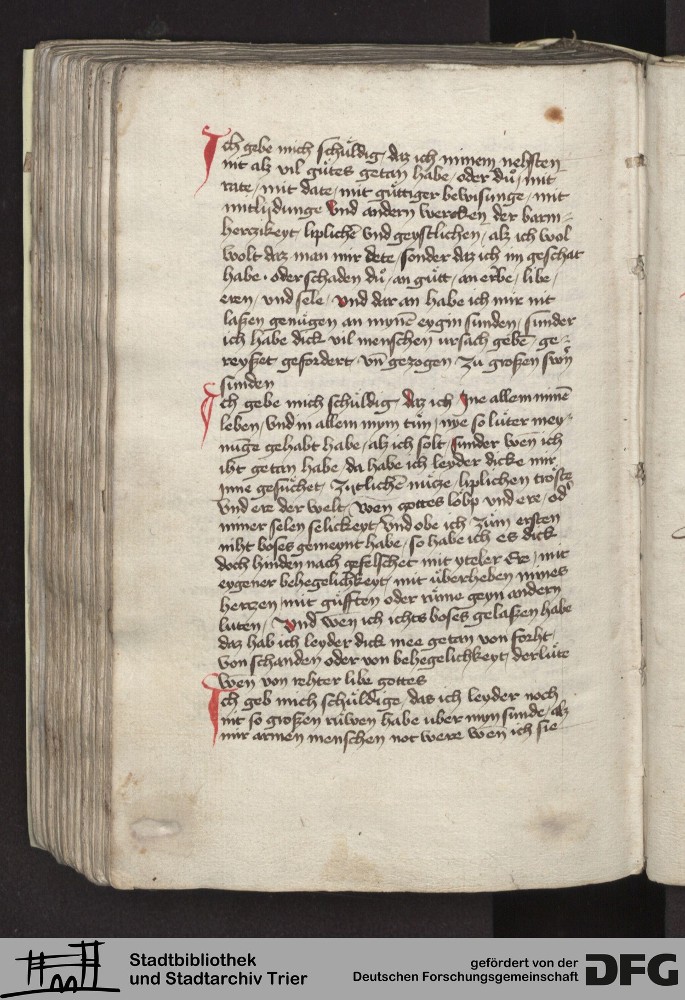 Ich gebe mich schuldig daz ich minem nehsten
nit alz vil gutes getan habe / oder du / mit
rate / mit date / mit guttiger bewisunge / mit
mitlijdunge Und andern wercken der barm=
herzikeyt / liplichē vnd geystlichen / alz ich wol
wolt daz man mir dete / sonder daz ich im geschat
habe · oder schaden du / an gutt / an erbe / libe /
eren / vnd sele / Vnd dar an habe ich mir nit
laßen genugen an mynē eygin sunden / sunder
ich habe dick vil menschen ursach gebē ge=
reyßet gefordert / vn̄ gezogen / zu großen
sunden
Ich gebe mich schuldig daz ich Jne allem minē
leben / vnd in allem mym tun / nye so luter mey=
nūge gehabt habe / alz ich solt / sunder wen ich
iht getan habe / da habe ich leyder dicke mir
jnne gesuchet / zijtlichē nutze / liplichen troste
vnd ere der welt / wen gottes lobp vnd ere / od'
miner selen selickeyt / Vnd obe ich zum ersten
niht boses gemeynt habe / so habe ich es dick
doch hinden nach gefelschet mit yteler Ere / mit
eygener behegelichkeyt / mit überheben mines
herzen / mit gufften oder rume geyn andern
luten / Vnd wen ich ichts boses gelaßen habe
daz hab ich leyder dick mee getan von forht /
von schanden oder von behegelichkeyt / der lute
Wen von rehter libe gottes
Ich geb mich schuldige / das ich leyder noch
nit so großen ruwen habe uber myn sunde / alz
mir armen menschen not were wen ich sie
Stadtbibliothek
und Stadtarchiv Trier
gefördert von der
Deutschen Forschungsgemeinschaft
DFG